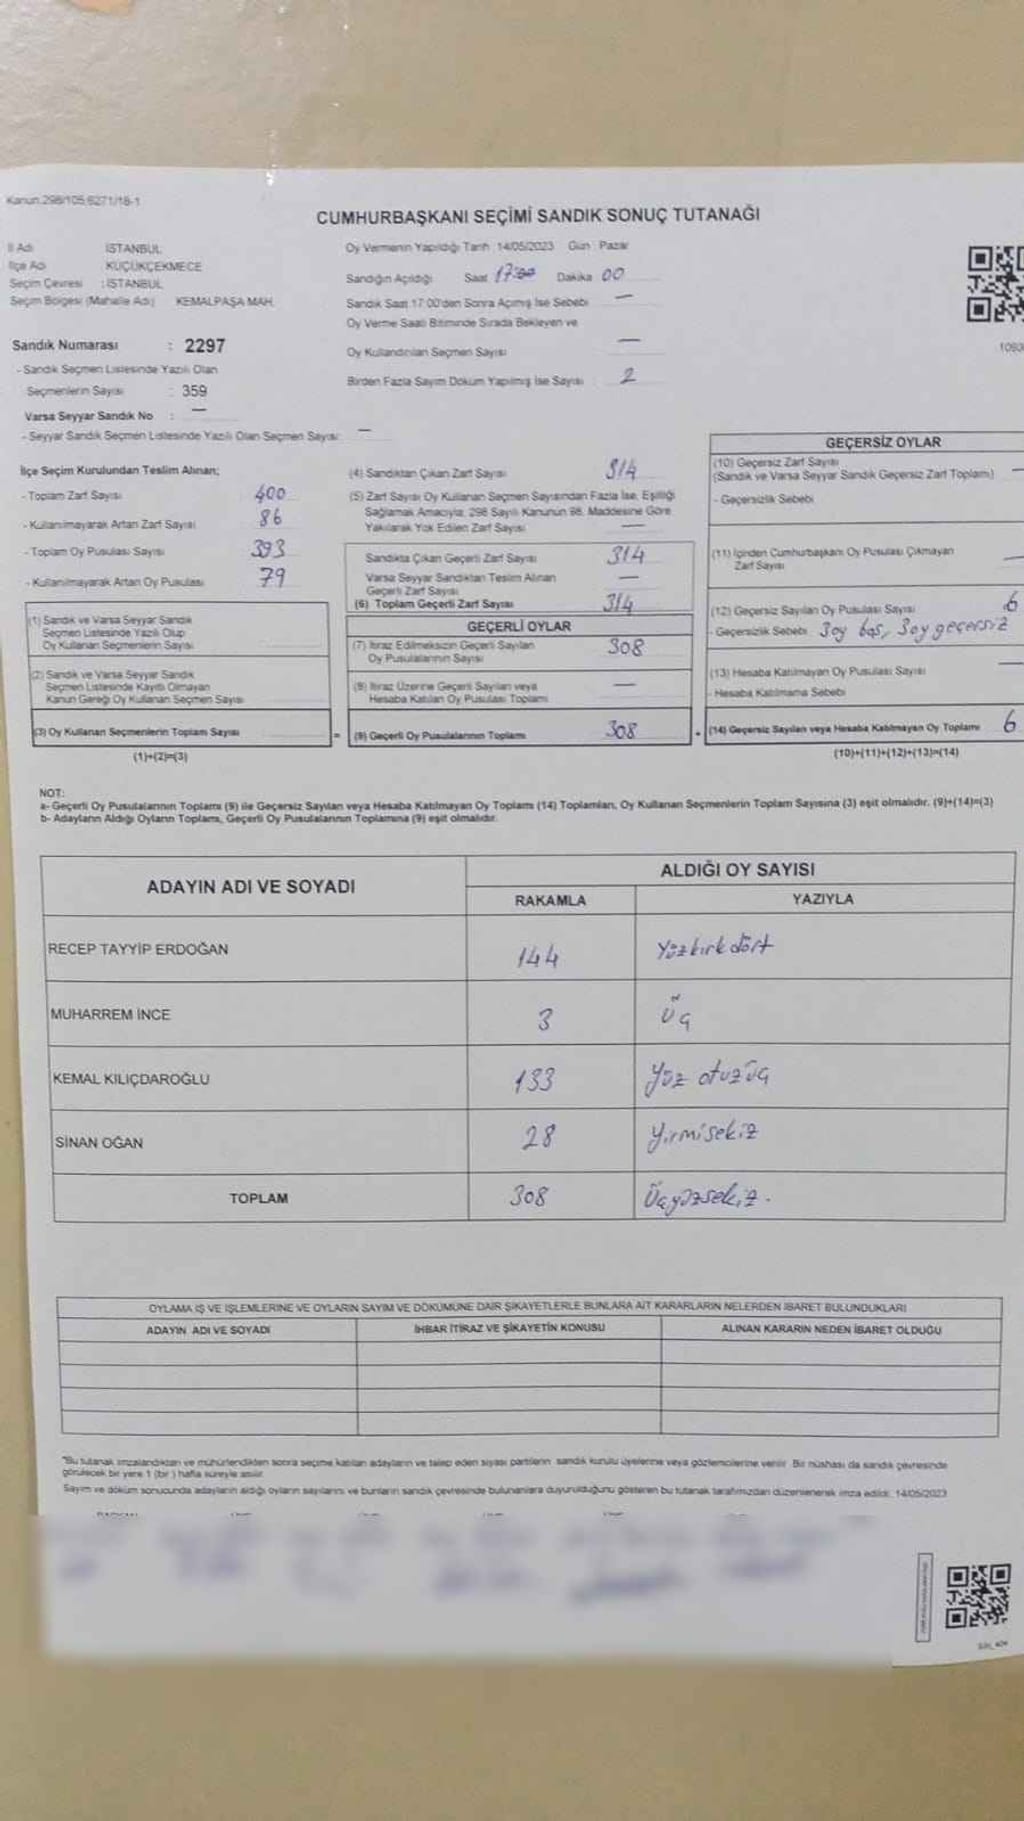 Kanun.298/105,6271/18-1
CUMHURBAŞKANI SEÇİMİ SANDIK SONUÇ TUTANAĞI
İl Adı İSTANBUL
İlçe Adı KÜÇÜKÇEKMECE
Seçim Çevresi : İSTANBUL
Seçim Bölgesi (Mahalle Adı) KEMALPAŞA MAH.
Oy Vermenin Yapıldığı Tarih 14/05/2023 Gün Pazar
Sandığın Açıldığı Saat 17:00 Dakika 00
Sandık Saat 17.00'den Sonra Açılmış İse Sebebi —
Oy Verme Saati Bitiminde Sırada Bekleyen ve
Oy Kullandırılan Seçmen Sayısı —
Birden Fazla Sayım Döküm Yapılmış İse Sayısı : 2
Sandık Numarası : 2297
- Sandık Seçmen Listesinde Yazılı Olan
Seçmenlerin Sayısı : 359
Varsa Seyyar Sandık No : —
- Seyyar Sandık Seçmen Listesinde Yazılı Olan Seçmen Sayısı: —
İlçe Seçim Kurulundan Teslim Alınan;
- Toplam Zarf Sayısı 400
- Kullanılmayarak Artan Zarf Sayısı 86
- Toplam Oy Pusulası Sayısı 393
- Kullanılmayarak Artan Oy Pusulası 79
(1) Sandık ve Varsa Seyyar Sandık
Seçmen Listesinde Yazılı Olup
Oy Kullanan Seçmenlerin Sayısı
(2) Sandık ve Varsa Seyyar Sandık
Seçmen Listesinde Kayıtlı Olmayan
Kanun Gereği Oy Kullanan Seçmen Sayısı
(3) Oy Kullanan Seçmenlerin Toplam Sayısı
(1)+(2)=(3)
(4) Sandıktan Çıkan Zarf Sayısı 314
(5) Zarf Sayısı Oy Kullanan Seçmen Sayısından Fazla İse, Eşitliği
Sağlamak Amacıyla, 298 Sayılı Kanunun 98. Maddesine Göre
Yakılarak Yok Edilen Zarf Sayısı —
Sandıkta Çıkan Geçerli Zarf Sayısı 314
Varsa Seyyar Sandıktan Teslim Alınan
Geçerli Zarf Sayısı —
(6) Toplam Geçerli Zarf Sayısı 314
GEÇERLİ OYLAR
(7) İtiraz Edilmeksizin Geçerli Sayılan
Oy Pusulalarının Sayısı 308
(8) İtiraz Üzerine Geçerli Sayılan veya
Hesaba Katılan Oy Pusulası Toplamı —
= (9) Geçerli Oy Pusulalarının Toplamı 308
GEÇERSİZ OYLAR
(10) Geçersiz Zarf Sayısı
(Sandık ve Varsa Seyyar Sandık Geçersiz Zarf Toplamı) —
- Geçersizlik Sebebi
(11) İçinden Cumhurbaşkanı Oy Pusulası Çıkmayan
Zarf Sayısı —
(12) Geçersiz Sayılan Oy Pusulası Sayısı 6
- Geçersizlik Sebebi 3 oy boş, 3 oy geçersiz
(13) Hesaba Katılmayan Oy Pusulası Sayısı —
- Hesaba Katılmama Sebebi
+ (14) Geçersiz Sayılan veya Hesaba Katılmayan Oy Toplamı 6
(10)+(11)+(12)+(13)=(14)
NOT:
a- Geçerli Oy Pusulalarının Toplamı (9) ile Geçersiz Sayılan veya Hesaba Katılmayan Oy Toplamı (14) Toplamları, Oy Kullanan Seçmenlerin Toplam Sayısına (3) eşit olmalıdır. (9)+(14)=(3)
b- Adayların Aldığı Oyların Toplamı, Geçerli Oy Pusulalarının Toplamına (9) eşit olmalıdır.
ADAYIN ADI VE SOYADI ALDIĞI OY SAYISI
RAKAMLA YAZIYLA
RECEP TAYYİP ERDOĞAN 144 Yüzkırkdört
MUHARREM İNCE 3 Üç
KEMAL KILIÇDAROĞLU 133 Yüz otuzüç
SİNAN OĞAN 28 Yirmisekiz
TOPLAM 308 Üçyüzsekiz.
OYLAMA İŞ VE İŞLEMLERİNE VE OYLARIN SAYIM VE DÖKÜMÜNE DAİR ŞİKAYETLERLE BUNLARA AİT KARARLARIN NELERDEN İBARET BULUNDUKLARI
ADAYIN ADI VE SOYADI İHBAR İTİRAZ VE ŞİKAYETİN KONUSU ALINAN KARARIN NEDEN İBARET OLDUĞU
"Bu tutanak imzalandıktan ve mühürlendikten sonra seçime katılan adayların ve talep eden siyasi partilerin sandık kurulu üyelerine veya gözlemcilerine verilir. Bir nüshası da sandık çevresinde
görülecek bir yere 1 (bir) hafta süreyle asılır.
Sayım ve döküm sonucunda adayların aldığı oyların sayılarını ve bunların sandık çevresinde bulunanlara duyurulduğunu gösteren bu tutanak tarafımızdan düzenlenerek imza edildi. 14/05/2023